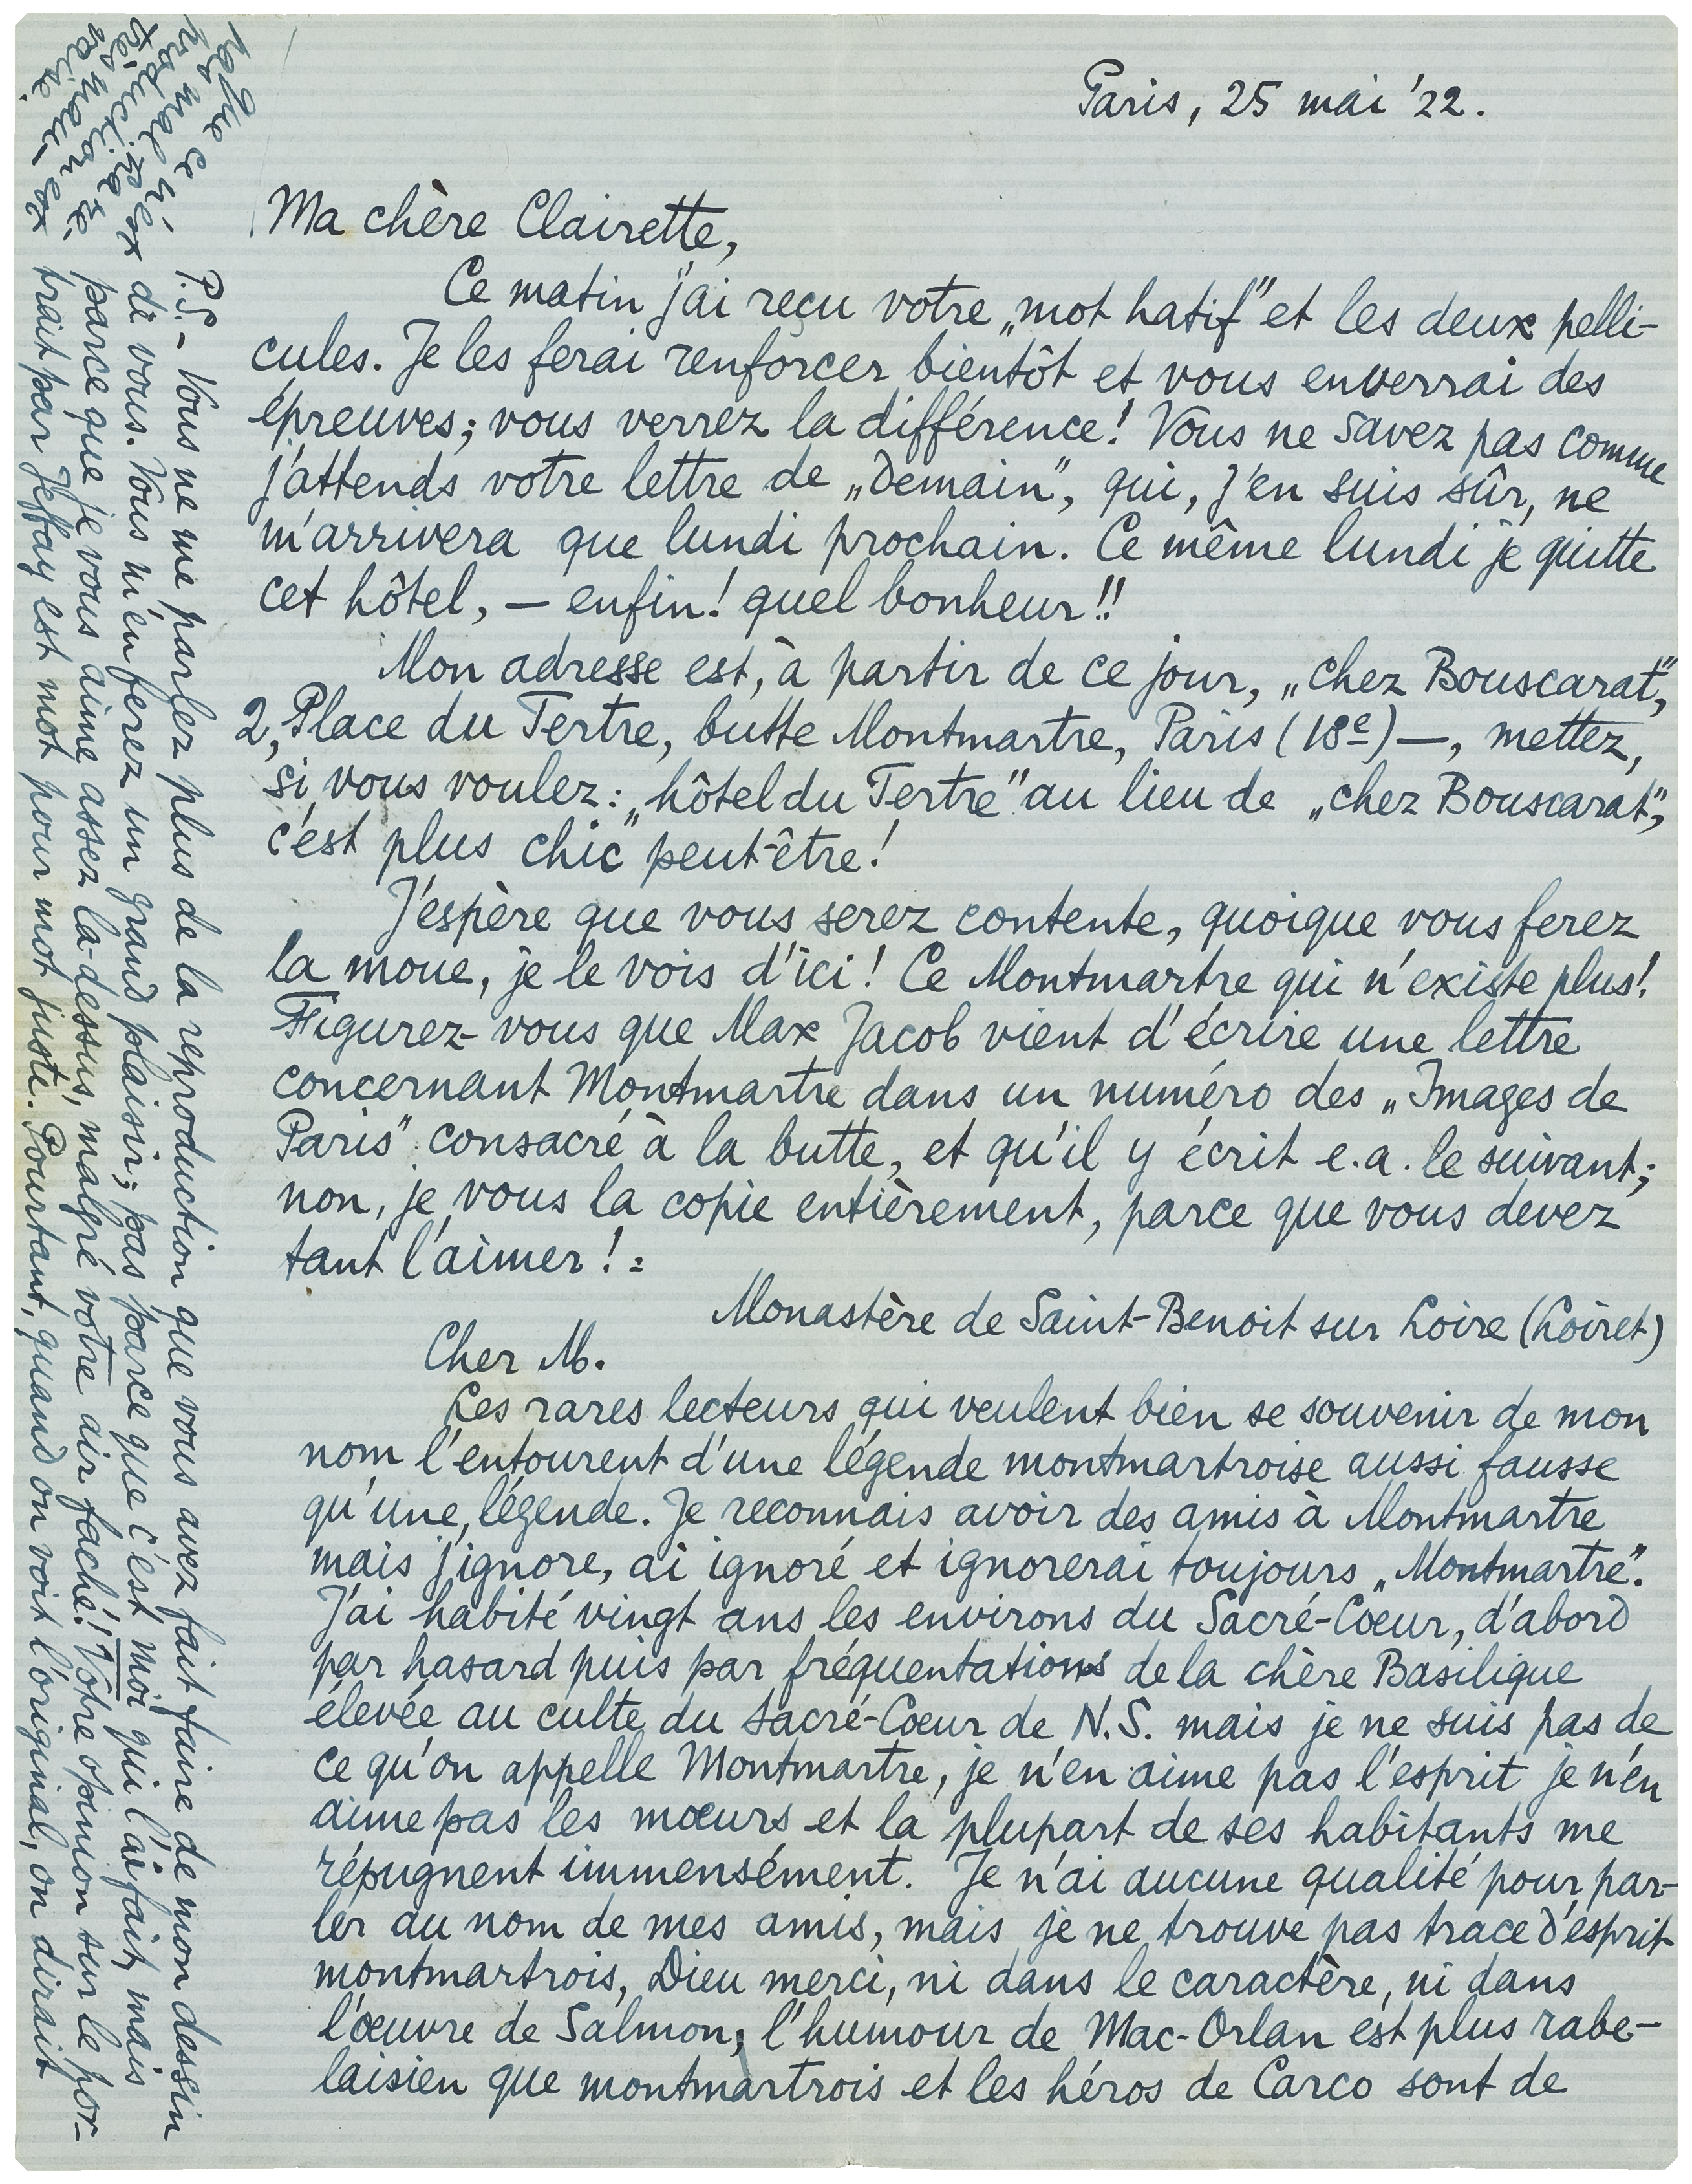 Paris, 25 mai '22.
Ma chère Clairette,
Ce matin j'ai reçu votre „mot hatif" et les deux pelli-
cules. Je les ferai renforcer bientôt et vous enverrai des
épreuves; vous verrez la différence! Vous ne savez pas comme
j'attends votre lettre de „Demain", qui, j'en suis sûr, ne
m'arrivera que lundi prochain. Ce même lundi je quitte
cet hôtel, — enfin! quel bonheur!!
Mon adresse est, à partir de ce jour, „chez Bouscarat",
2, Place du Tertre, butte Montmartre, Paris (18e) —, mettez,
si vous voulez: „hôtel du Tertre" au lieu de „chez Bouscarat",
c'est plus „chic" peut-être!
J'espère que vous serez contente, quoique vous ferez
la moue, je le vois d'ici! Ce Montmartre qui n'existe plus!
Figurez-vous que Max Jacob vient d'écrire une lettre
concernant Montmartre dans un numéro des „Images de
Paris" consacré à la butte, et qu'il y écrit e.a. le suivant;
non, je vous la copie entièrement, parce que vous devez
tant l'aimer! :
Monastère de Saint-Benoit sur Loire (Loiret)
Cher M.
Les rares lecteurs qui veulent bien se souvenir de mon
nom l'entourent d'une légende montmartroise aussi fausse
qu'une légende. Je reconnais avoir des amis à Montmartre
mais j'ignore, ai ignoré et ignorerai toujours „Montmartre".
J'ai habité vingt ans les environs du Sacré-Coeur, d'abord
par hasard puis par fréquentations de la chère Basilique
élevée au culte du Sacré-Coeur de N.S. mais je ne suis pas de
ce qu'on appelle Montmartre, je n'en aime pas l'esprit je n'en
aime pas les mœurs et la plupart de ses habitants me
répugnent immensément. Je n'ai aucune qualité pour par-
ler au nom de mes amis, mais je ne trouve pas trace d'esprit
montmartrois, Dieu merci, ni dans le caractère, ni dans
l'œuvre de Salmon; l'humour de Mac-Orlan est plus rabe-
laisien que montmartrois et les héros de Carco sont de
P.S. - Vous ne me parlez plus de la reproduction que vous avez fait faire de mon dessin
di vous. Vous m'en ferez un grand plaisir; pas parce que c'est moi qui l'ai fait, mais
parce que je vous aime assez là-dessus, malgré votre air faché! Votre opinion sur le por-
trait par Jeffay est mot pour mot juste. Pourtant, quand on voit l'original, on dirait
que ce
pas mal
produit, n'est
très mau-
vaise.